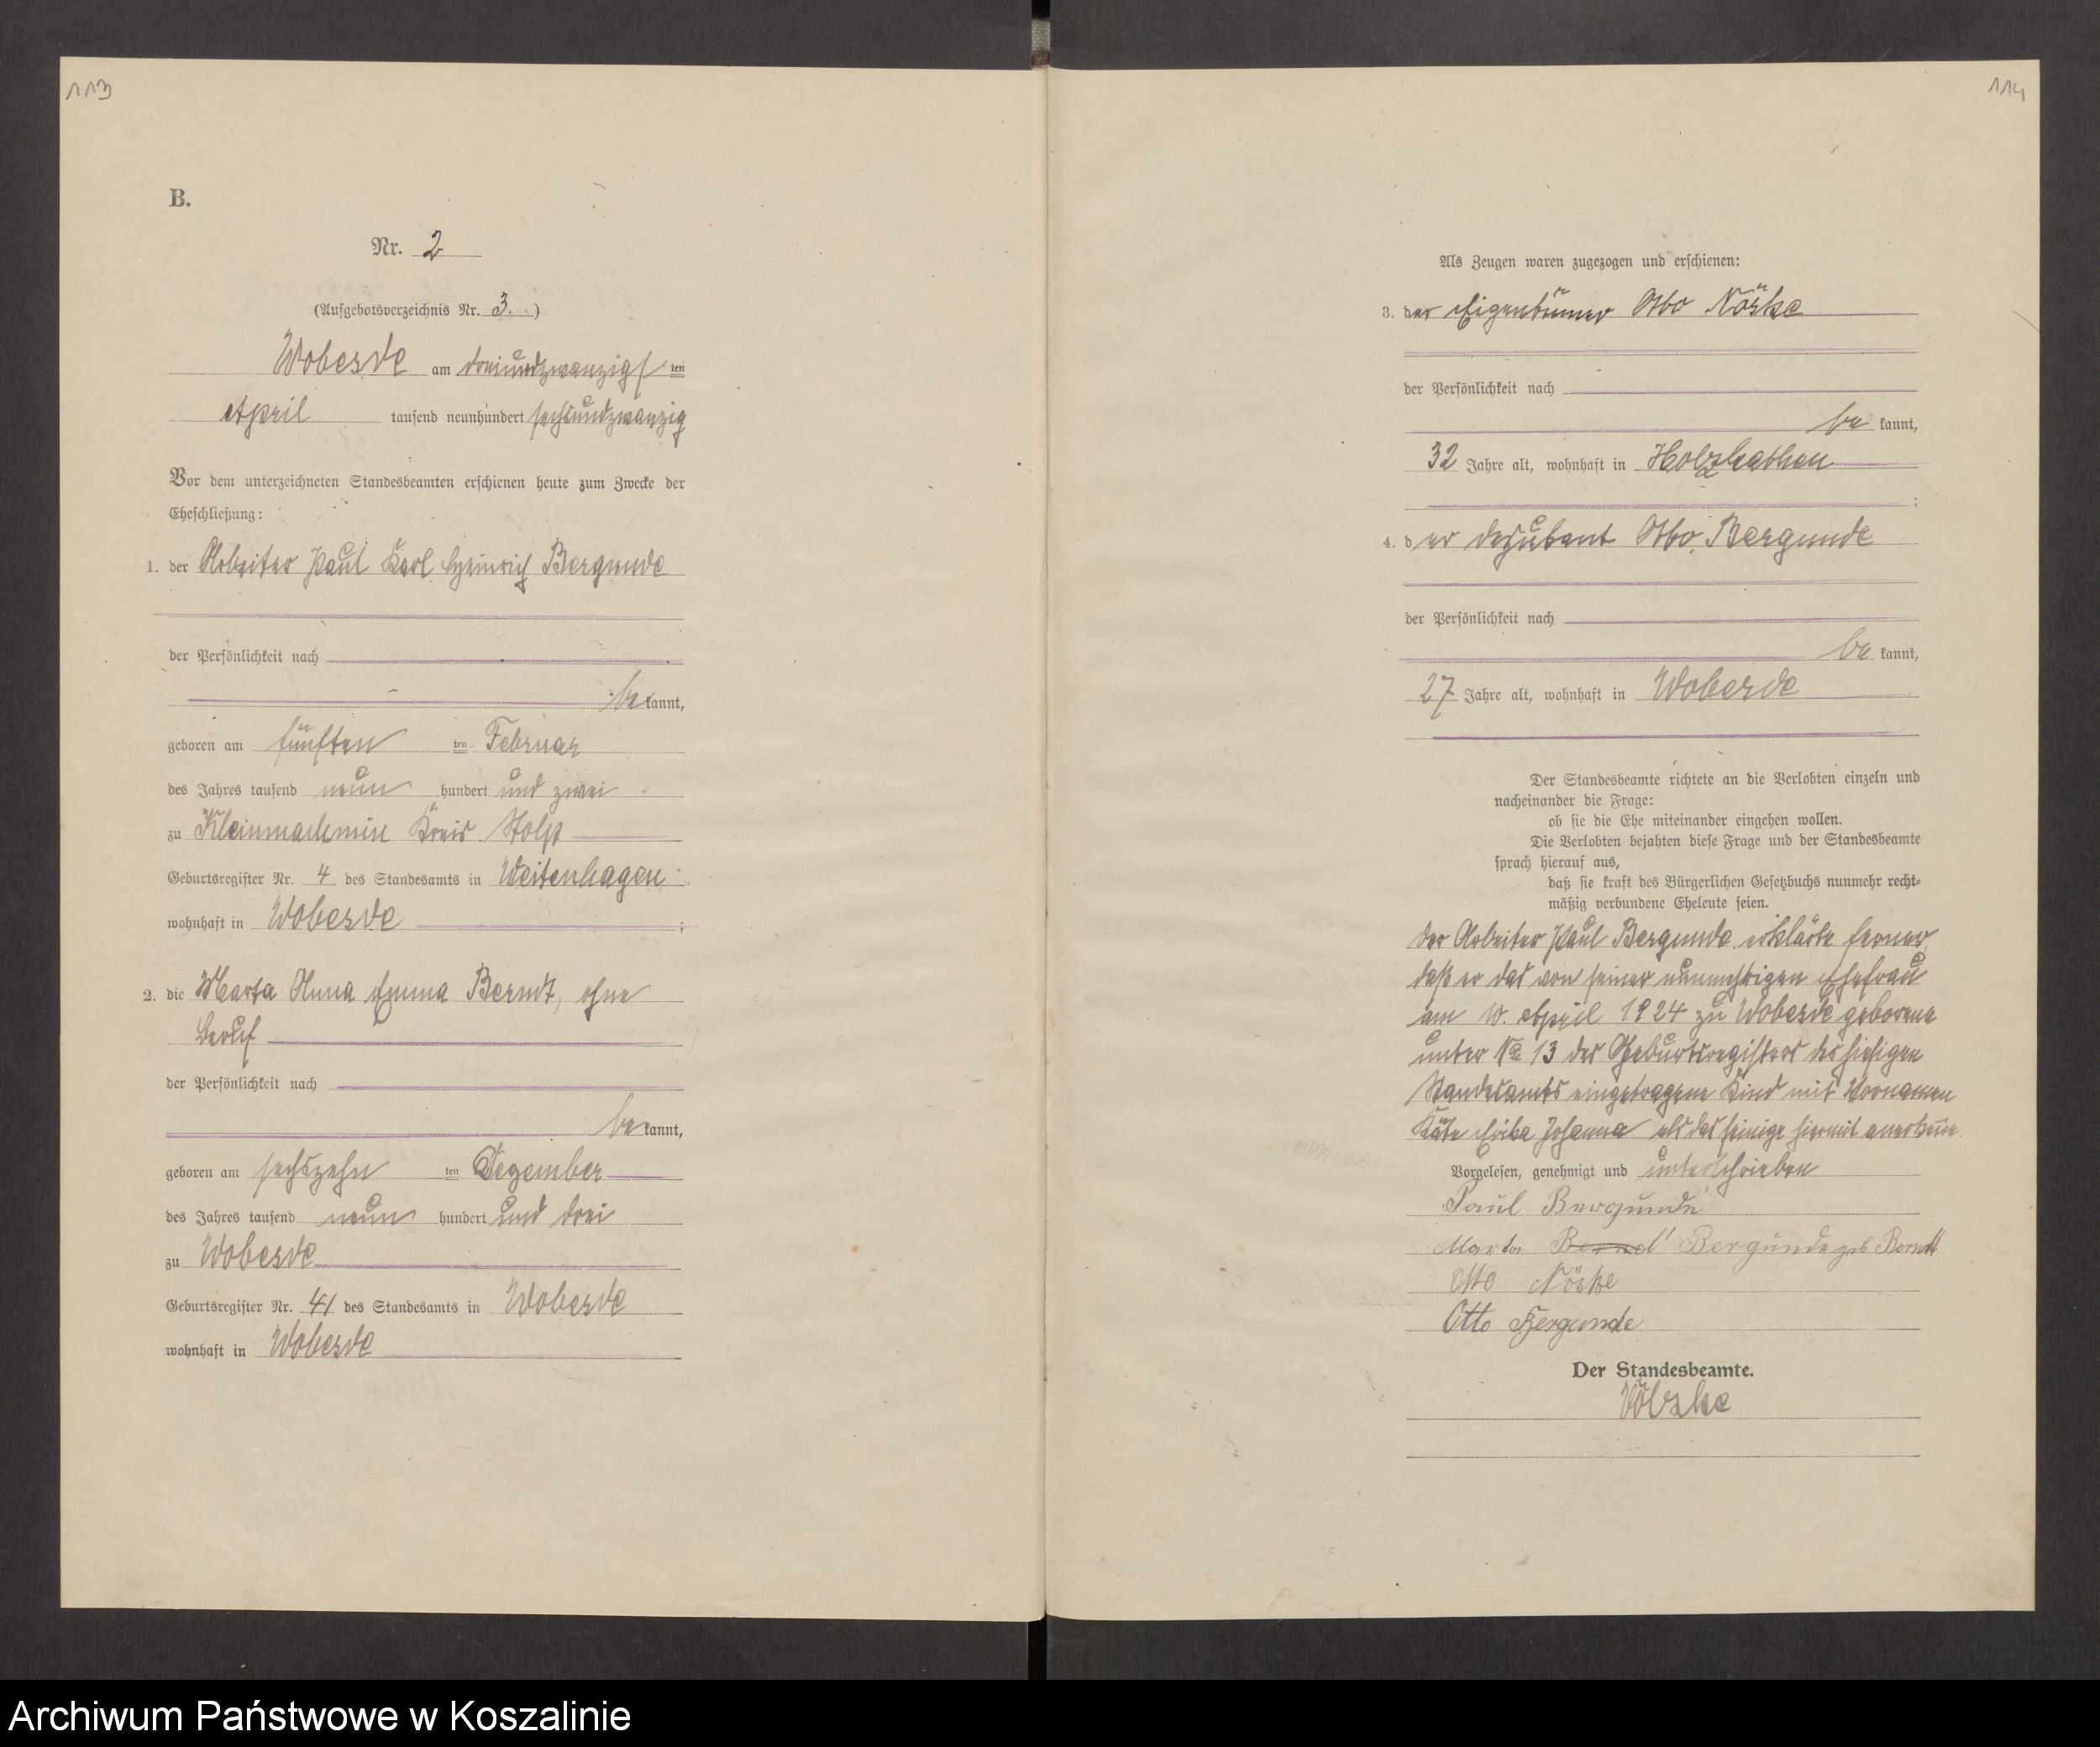 113
B.
Nr. 2
(Aufgebotsverzeichnis Nr. 3.)
Wobesde am dreiundzwanzigs ten
April tausend neunhundert sechsundzwanzig
Vor dem unterzeichneten Standesbeamten erschienen heute zum Zwecke der
Eheschließung:
1. der Arbeiter Paul Karl Heinrich Bergunde
der Persönlichkeit nach
be kannt,
geboren am fünften ten Februar
des Jahres tausend neun hundert und zwei
zu Kleinmachmin Kreis Stolp
Geburtsregister Nr. 4 des Standesamts in Weitenhagen
wohnhaft in Wobesde ;
2. die Marta Anna Emma Berndt, ohne
Beruf
der Persönlichkeit nach
be kannt,
geboren am sechszehn ten Dezember
des Jahres tausend neun hundert und drei
zu Wobesde
Geburtsregister Nr. 41 des Standesamts in Wobesde
wohnhaft in Wobesde
114
Als Zeugen waren zugezogen und erschienen:
3. der Eigentümer Otto Nöske
der Persönlichkeit nach
be kannt,
32 Jahre alt, wohnhaft in Holzkathen
;
4. der Deputant Otto Bergunde
der Persönlichkeit nach
be kannt,
27 Jahre alt, wohnhaft in Wobesde
Der Standesbeamte richtete an die Verlobten einzeln und
nacheinander die Frage:
ob sie die Ehe miteinander eingehen wollen.
Die Verlobten bejahten diese Frage und der Standesbeamte
sprach hierauf aus,
daß sie kraft des Bürgerlichen Gesetzbuchs nunmehr recht-
mäßig verbundene Eheleute seien.
Der Arbeiter Paul Bergunde erklärte ferner,
daß er das von seiner nunmehrigen Ehefrau
am 10. April 1924 zu Wobesde geborene
unter No 13 des Geburtsregisters des hiesigen
Standesamts eingetragene Kind mit Vornamen
Käte Erika Johanna als das seinige hiermit anerkenne.
Vorgelesen, genehmigt und unterschrieben
Paul Bergunde
Marta Bernd Bergunde geb Berndt
Otto Nöske
Otto Bergunde
Der Standesbeamte.
Völzke
Archiwum Państwowe w Koszalinie